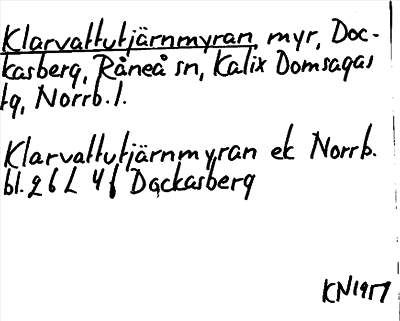 Klarvattutjärnmyran, myr, Doc-
kasberg, Råneå sn, Kalix Domsagas
tg, Norrb. l.
Klarvattutjärnmyran ek Norrb.
bl. 26 L 4f Dockasberg
KN 1917